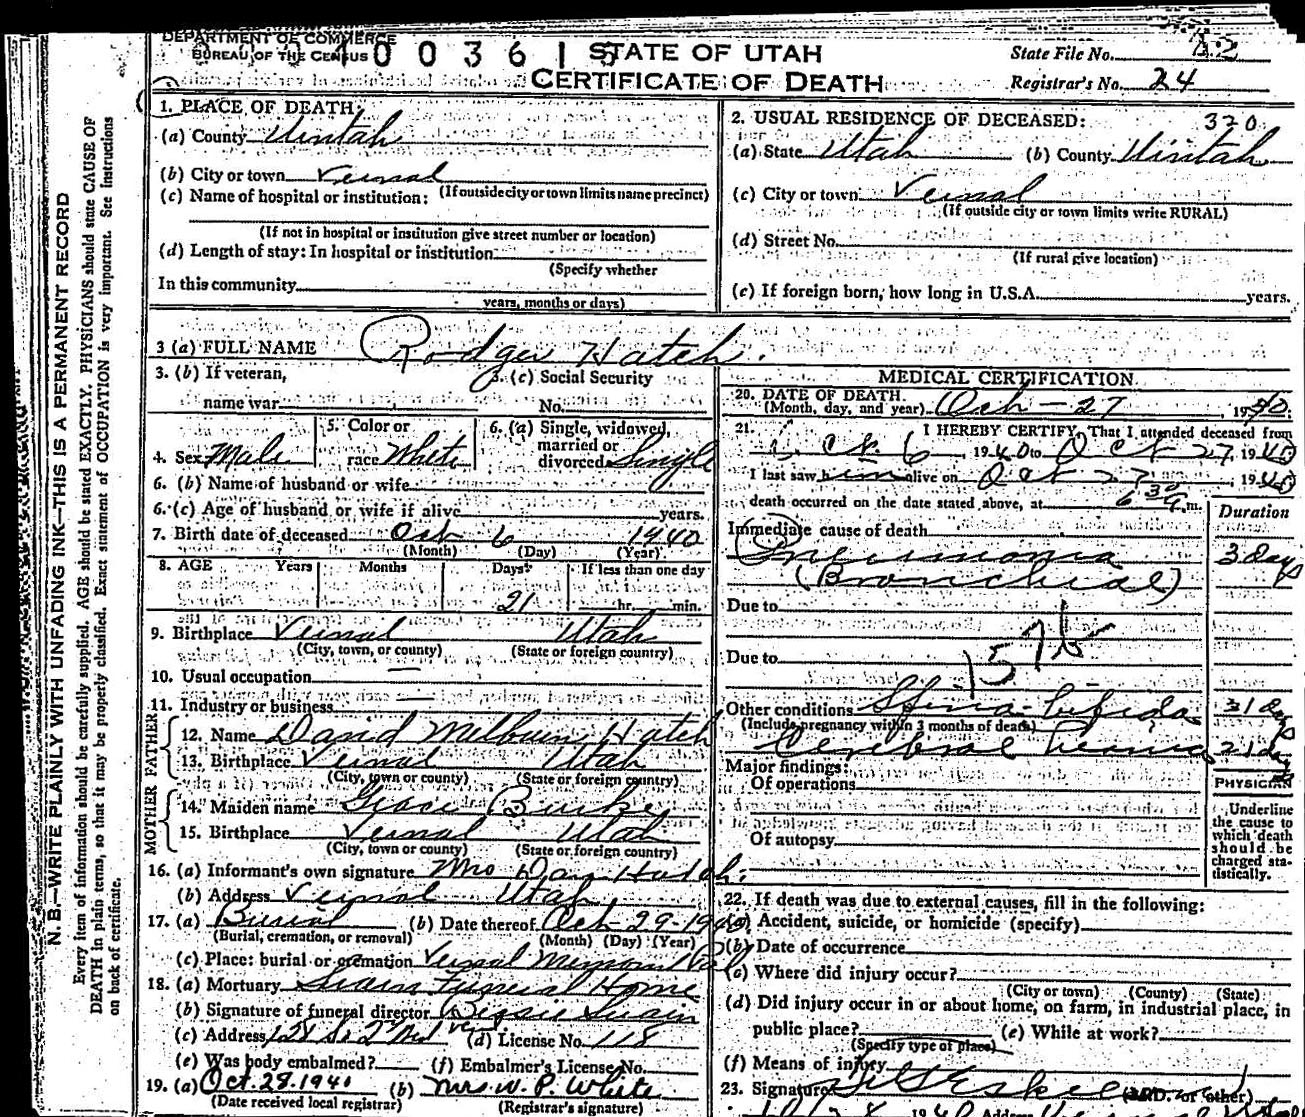 DEPARTMENT OF COMMERCE
BUREAU OF THE CENSUS
4 0 0 3 6 1 5
STATE OF UTAH
CERTIFICATE OF DEATH
State File No.
Registrar's No. 24
1. PLACE OF DEATH:
(a) County Uintah
(b) City or town Vernal
(If outside city or town limits name precinct)
(c) Name of hospital or institution:
(If not in hospital or institution give street number or location)
(d) Length of stay: In hospital or institution
(Specify whether
In this community
years, months or days)
2. USUAL RESIDENCE OF DECEASED: 320
(a) State Utah (b) County Uintah
(c) City or town Vernal
(If outside city or town limits write RURAL)
(d) Street No.
(If rural give location)
(e) If foreign born, how long in U.S.A. years.
3 (a) FULL NAME Rodger Hatch.
3. (b) If veteran, 3. (c) Social Security
name war No.
4. Sex Male 5. Color or race White 6. (a) Single, widowed, married or divorced Single
6. (b) Name of husband or wife
6. (c) Age of husband or wife if alive years.
7. Birth date of deceased Oct 6 1940
(Month) (Day) (Year)
8. AGE Years Months Days If less than one day
21 hr. min.
9. Birthplace Vernal Utah
(City, town, or county) (State or foreign country)
10. Usual occupation —
11. Industry or business
FATHER
12. Name David Milburn Hatch
13. Birthplace Vernal Utah
(City, town or county) (State or foreign country)
MOTHER
14. Maiden name Grace Burke
15. Birthplace Vernal Utah
(City, town or county) (State or foreign country)
16. (a) Informant's own signature Mrs Dan Hatch.
(b) Address Vernal Utah
17. (a) Burial (b) Date thereof Oct 29-1940
(Burial, cremation, or removal) (Month) (Day) (Year)
(c) Place: burial or cremation Vernal Memorial
18. (a) Mortuary Swain Funeral Home
(b) Signature of funeral director Swain
(c) Address 121 So 2nd (d) License No. 118
(e) Was body embalmed? (f) Embalmer's License No.
19. (a) Oct. 28. 1940 (b) Mrs. W. P. White
(Date received local registrar) (Registrar's signature)
MEDICAL CERTIFICATION
20. DATE OF DEATH
(Month, day, and year) Oct - 27, 1940.
21. I HEREBY CERTIFY, That I attended deceased from
Oct. 6, 1940 to Oct 27, 1940
I last saw him alive on Oct 27, 1940
death occurred on the date stated above, at 6 30 a. m.
Duration
Immediate cause of death
Pneumonia 3 days
(Bronchial)
Due to
157b
Due to
Other conditions Spina-bifida 21 days
(Include pregnancy within 3 months of death)
Cerebral hernia 21 days
Major findings:
Of operations
Of autopsy
PHYSICIAN
Underline the cause to which death should be charged statistically.
22. If death was due to external causes, fill in the following:
(a) Accident, suicide, or homicide (specify)
(b) Date of occurrence
(c) Where did injury occur?
(City or town) (County) (State)
(d) Did injury occur in or about home, on farm, in industrial place, in
public place? (e) While at work?
(Specify type of place)
(f) Means of injury
23. Signature (M.D. or other)
N. B.—WRITE PLAINLY WITH UNFADING INK—THIS IS A PERMANENT RECORD
Every item of information should be carefully supplied. AGE should be stated EXACTLY. PHYSICIANS should state CAUSE OF
DEATH in plain terms, so that it may be properly classified. Exact statement of OCCUPATION is very important. See Instructions
on back of certificate.